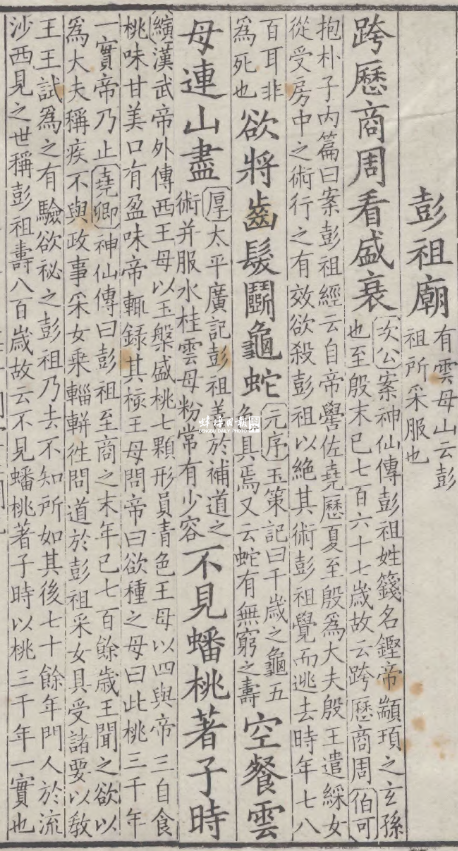 彭祖廟
有雲母山云彭
祖所采服也
跨歷商周看盛衰
次公案神仙傳彭祖姓籛名鏗帝顓頊之玄孫
也至殷末已七百六十七歲故云跨歷商周伯可
抱朴子內篇曰案彭祖經云自帝嚳佐堯歷夏至殷爲大夫殷王遣綵女
從受房中之術行之有效欲殺彭祖以絕其術彭祖覺而逃去時年七八
百耳非
爲死也
欲將齒髮鬭龜蛇
元序玉策記曰千歲之龜五
色具焉又云蛇有無窮之壽
空餐雲
母連山盡
厚太平廣記彭祖善於補道之
術并服水桂雲母粉常有少容
不見蟠桃著子時
縯漢武帝外傳西王母以玉槃盛桃七顆形員青色王母以四與帝三自食
桃味甘美口有盈味帝輒錄其核王母問帝曰欲種之母曰此桃三千年
一實帝乃止堯卿神仙傳曰彭祖至商之末年已七百餘歲王聞之欲以
爲大夫稱疾不與政事采女乘輜軿往問道於彭祖采女具受諸要以敎
王王試爲之有驗欲秘之彭祖乃去不知所如其後七十餘年門人於流
沙西見之世稱彭祖壽八百歲故云不見蟠桃著子時以桃三千年一實也